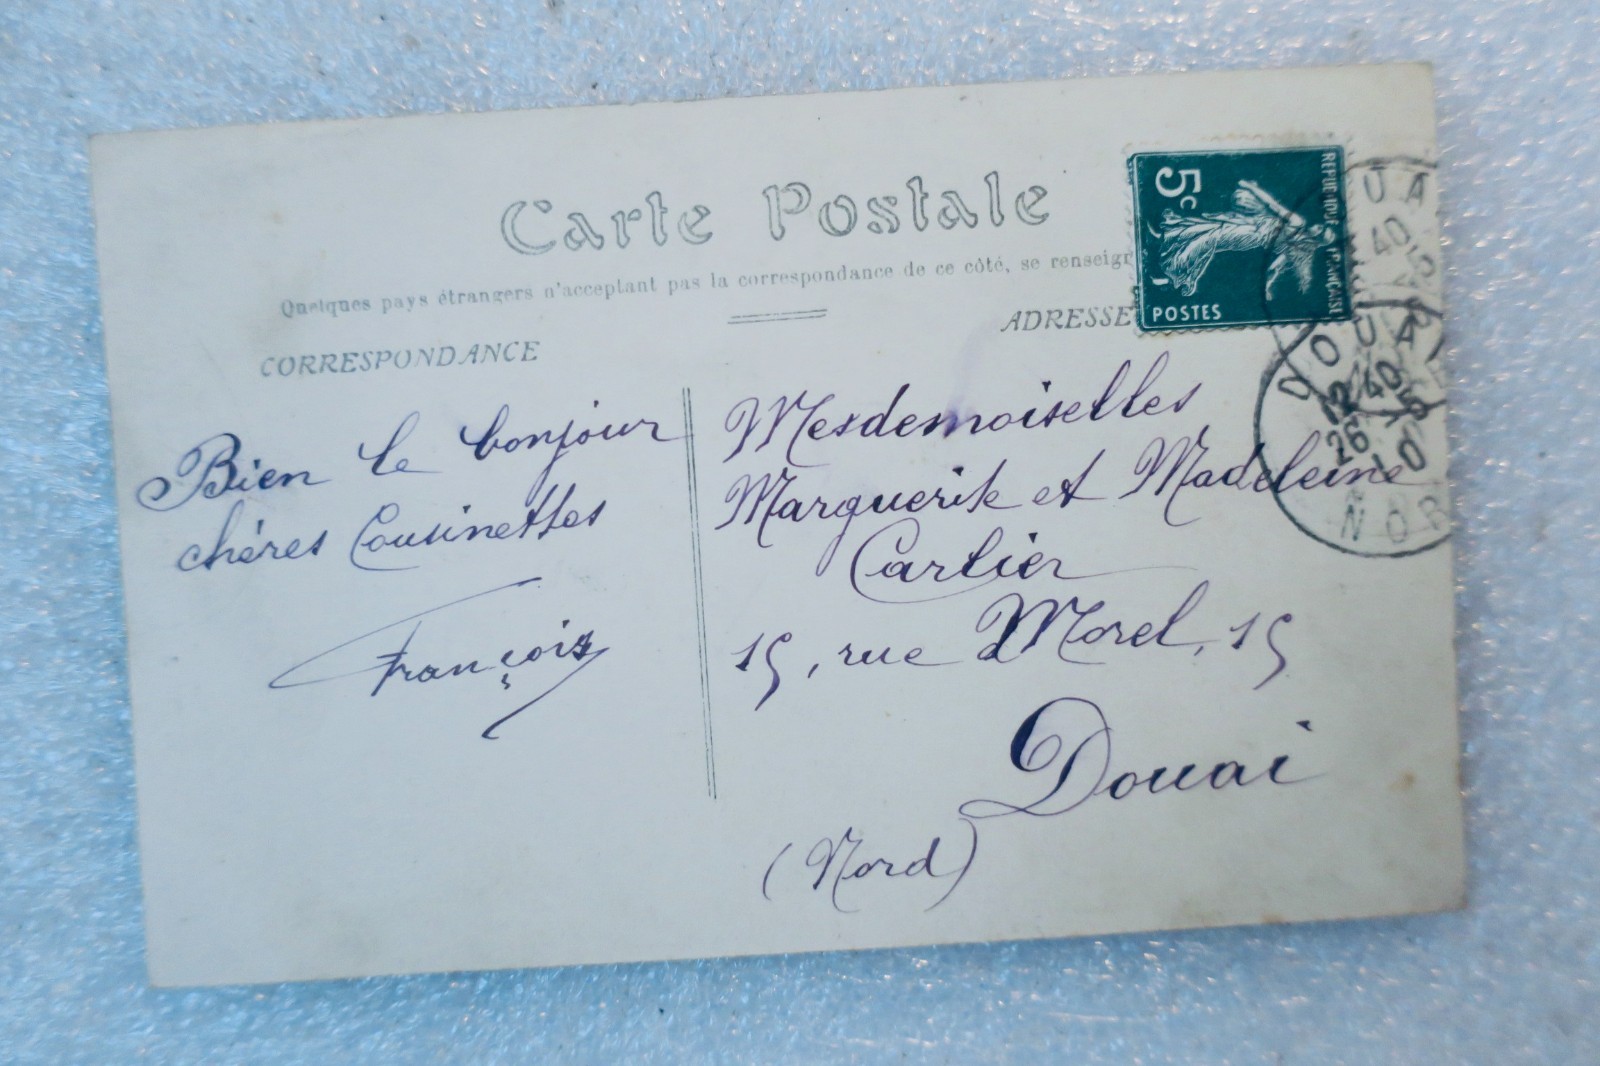 Carte Postale
Quelques pays étrangers n'acceptant pas la correspondance de ce côté, se renseigr
CORRESPONDANCE
ADRESSE
Bien le bonjour
chères Cousinettes
François
Mesdemoiselles
Marguerite et Madeleine
Carlier
15, rue Morel, 15
Douai
(Nord)
5c
REPUBLIQUE FRANÇAISE
POSTES
UA
40
DOUAI
12 40
26 5
10
NOR